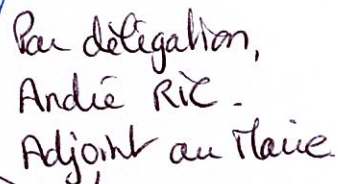 Par délégation,
André RIC.
Adjoint au Maire